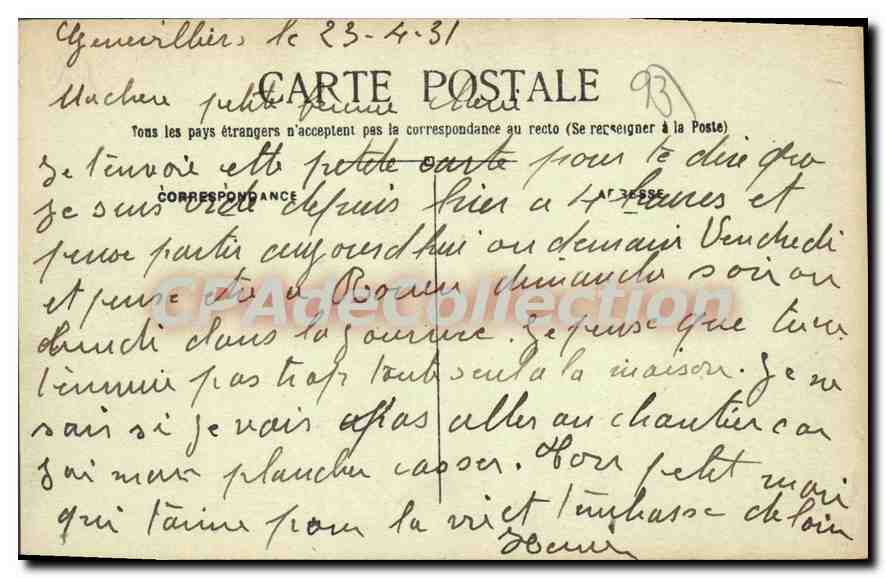 Genevilliers le 23-4-31
CARTE POSTALE
93
Ma chere petite femme cheri
Tous les pays étrangers n'acceptent pas la correspondance au recto (Se renseigner à la Poste)
Je t'envoie cette petite carte pour te dire que
CORRESPONDANCE ADRESSE
Je suis vide depuis hier a 4 heures et
pense partir aujourd'hui ou demain Vendredi
et pense etre a Rouen dimanche soir ou
lundi dans la journee. Je pense que tu ne
t'ennuie pas trop toute seul a la maison. Je ne
sais si je vais pas aller au chantier car
J'ai mon plancher casser. Ton petit mari
qui t'aime pour la vie et t'embrasse de loin
Henri
CPAdeCollection